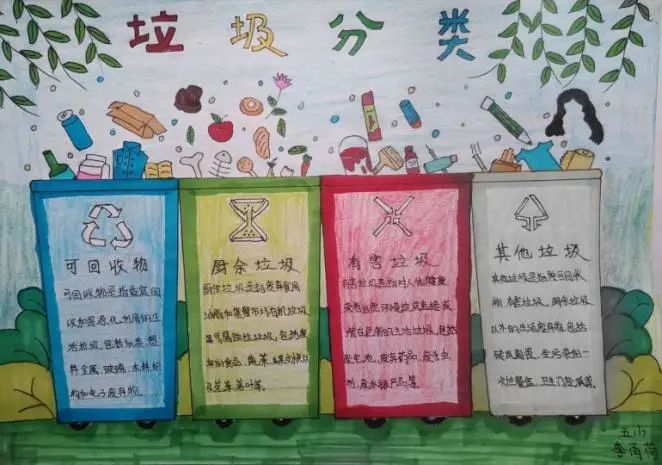 垃圾分类
可回收物
可回收物是指适宜回
收和资源化利用的生
活垃圾,包括纸类,塑
料金属,玻璃,木料织
物和电子废弃物。
厨余垃圾
厨余垃圾是指废弃食用
油脂和集餐环节有机垃圾
等易腐蚀性垃圾,包括废
弃的食品、蔬菜、瓜果
及花草、落叶等。
有害垃圾
有害垃圾是指对人体健康
或者自然环境造成直接或
潜在危害的生活垃圾,包括
废电池、废弃药品、废杀虫
剂、废水银产品等。
其他垃圾
其他垃圾是指除可回收
物、有害垃圾、厨余垃圾
以外的生活废弃物,包括
破瓦陶瓷、受污染的一
次性餐盒、卫生间废纸等。
五小
李雨荷